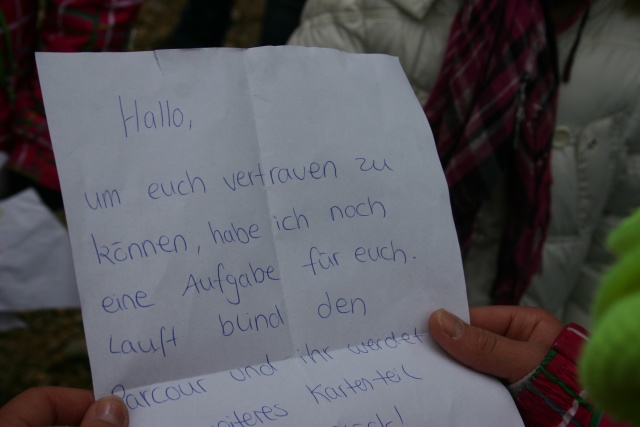 Hallo,
um euch vertrauen zu
können, habe ich noch
eine Aufgabe für euch.
Lauft blind den
Parcour und ihr werdet
weiteres Kartenteil